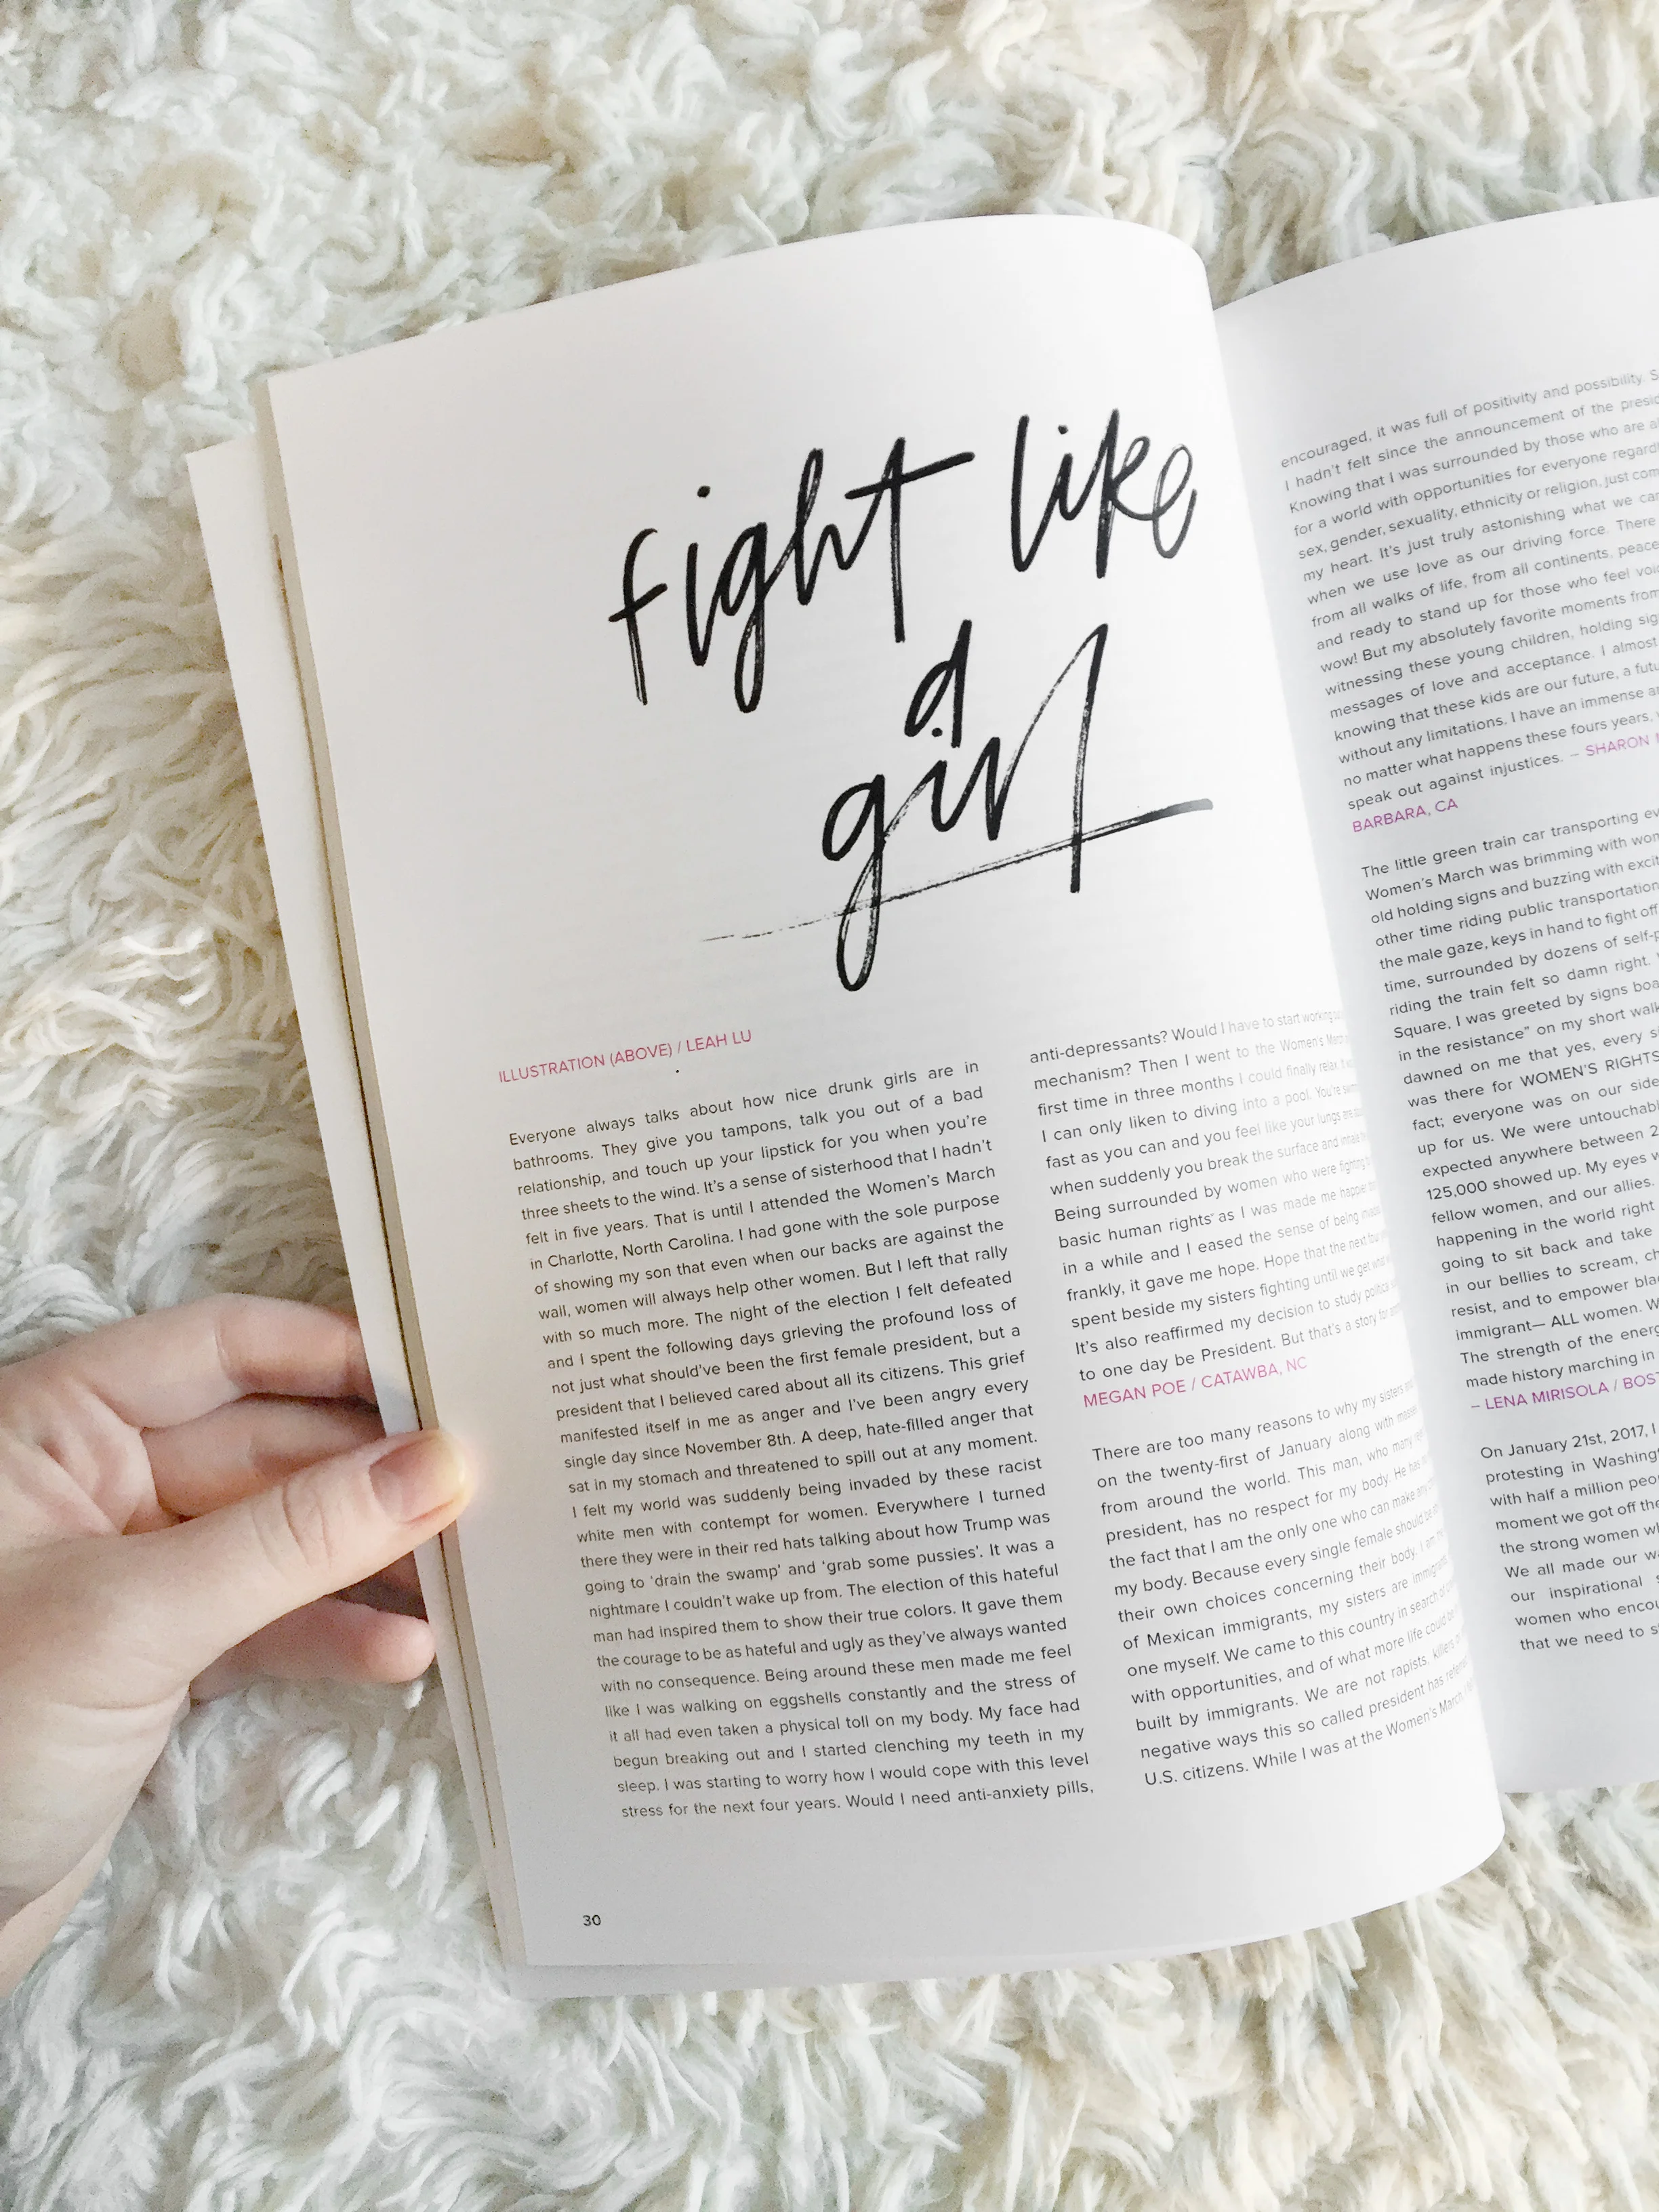 fight like
a
girl
ILLUSTRATION (ABOVE) / LEAH LU
Everyone always talks about how nice drunk girls are in
bathrooms. They give you tampons, talk you out of a bad
relationship, and touch up your lipstick for you when you're
three sheets to the wind. It's a sense of sisterhood that I hadn't
felt in five years. That is until I attended the Women's March
in Charlotte, North Carolina. I had gone with the sole purpose
of showing my son that even when our backs are against the
wall, women will always help other women. But I left that rally
with so much more. The night of the election I felt defeated
and I spent the following days grieving the profound loss of
not just what should've been the first female president, but a
president that I believed cared about all its citizens. This grief
manifested itself in me as anger and I've been angry every
single day since November 8th. A deep, hate-filled anger that
sat in my stomach and threatened to spill out at any moment.
I felt my world was suddenly being invaded by these racist
white men with contempt for women. Everywhere I turned
there they were in their red hats talking about how Trump was
going to 'drain the swamp' and 'grab some pussies'. It was a
nightmare I couldn't wake up from. The election of this hateful
man had inspired them to show their true colors. It gave them
the courage to be as hateful and ugly as they've always wanted
with no consequence. Being around these men made me feel
like I was walking on eggshells constantly and the stress of
it all had even taken a physical toll on my body. My face had
begun breaking out and I started clenching my teeth in my
sleep. I was starting to worry how I would cope with this level
stress for the next four years. Would I need anti-anxiety pills,
30
anti-depressants? Would I have to start working
mechanism? Then I went to the Women's March
first time in three months I could finally relax.
I can only liken to diving into a pool. You're
fast as you can and you feel like your lungs are
when suddenly you break the surface and inhale
Being surrounded by women who were fighting
basic human rights as I was made me happier
in a while and I eased the sense of being
frankly, it gave me hope. Hope that the next four
spent beside my sisters fighting until we get what
It's also reaffirmed my decision to study political
to one day be President. But that's a story for
MEGAN POE / CATAWBA, NC
There are too many reasons to why my sisters
on the twenty-first of January along with masses
from around the world. This man, who many
president, has no respect for my body. He has
the fact that I am the only one who can make
my body. Because every single female should be
their own choices concerning their body. I am
of Mexican immigrants, my sisters are immigrants
one myself. We came to this country in search of
with opportunities, and of what more life could
built by immigrants. We are not rapists, killers
negative ways this so called president has
U.S. citizens. While I was at the Women's March I
encouraged, it was full of positivity and possibility.
I hadn't felt since the announcement of the
Knowing that I was surrounded by those who are
for a world with opportunities for everyone
sex, gender, sexuality, ethnicity or religion, just
my heart. It's just truly astonishing what we
when we use love as our driving force. There
from all walks of life, from all continents,
and ready to stand up for those who feel
wow! But my absolutely favorite moments from
witnessing these young children, holding
messages of love and acceptance. I almost
knowing that these kids are our future, a
without any limitations. I have an immense
no matter what happens these fours years,
speak out against injustices. – SHARON
BARBARA, CA
The little green train car transporting
Women's March was brimming with
old holding signs and buzzing with
other time riding public transportation
the male gaze, keys in hand to fight off
time, surrounded by dozens of
riding the train felt so damn right.
Square, I was greeted by signs
in the resistance" on my short
dawned on me that yes, every
was there for WOMEN'S RIGHTS
fact; everyone was on our side
up for us. We were
expected anywhere between
125,000 showed up. My eyes
fellow women, and our allies.
happening in the world right
going to sit back and take
in our bellies to scream,
resist, and to empower
immigrant— ALL women.
The strength of the
made history marching in
– LENA MIRISOLA /
On January 21st, 2017, I
protesting in
with half a million
moment we got off the
the strong women
We all made our
our inspirational
women who
that we need to